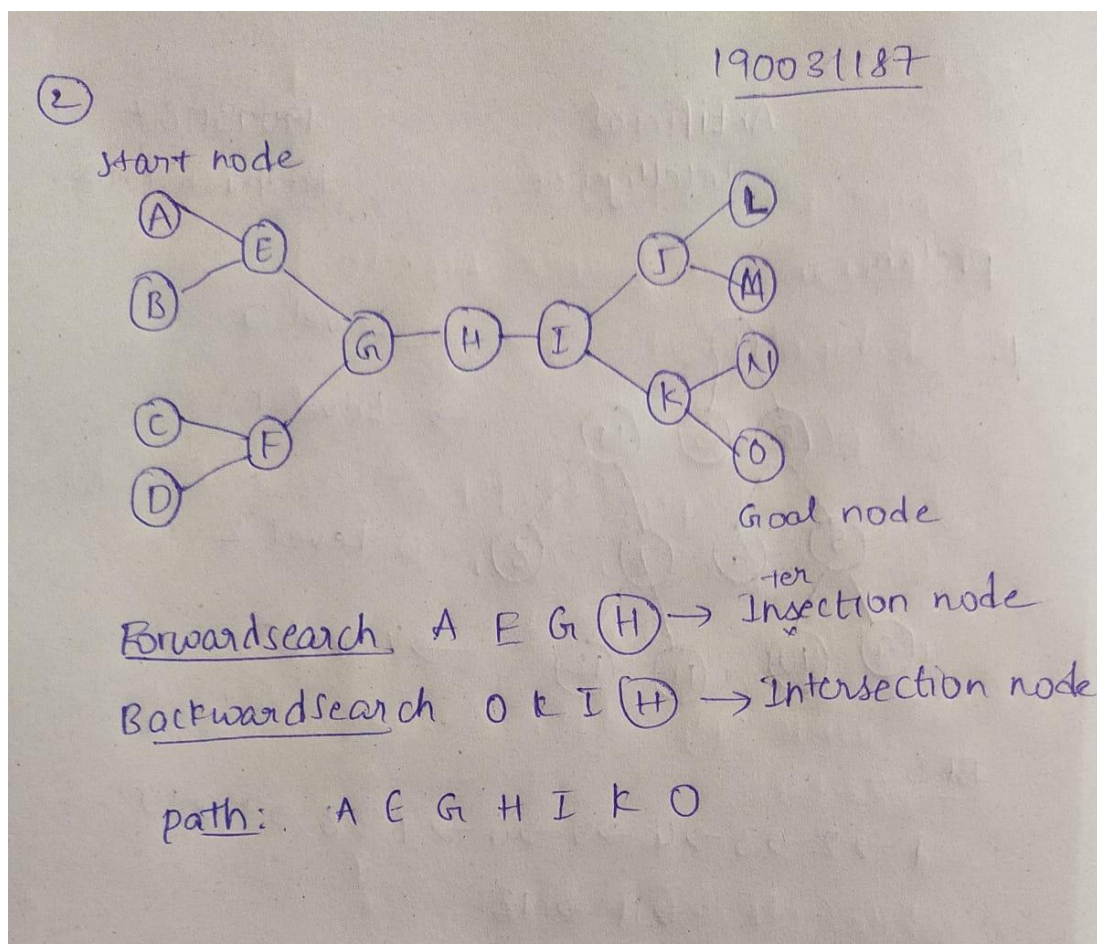 190031187
2
Start node
A
L
E
J
B
M
G H I
N
K
C
F
O
D
Goal node
ter
Forwardsearch A E G H → Insection node
Backwardsearch O K I H → Intersection node
path: A E G H I K O